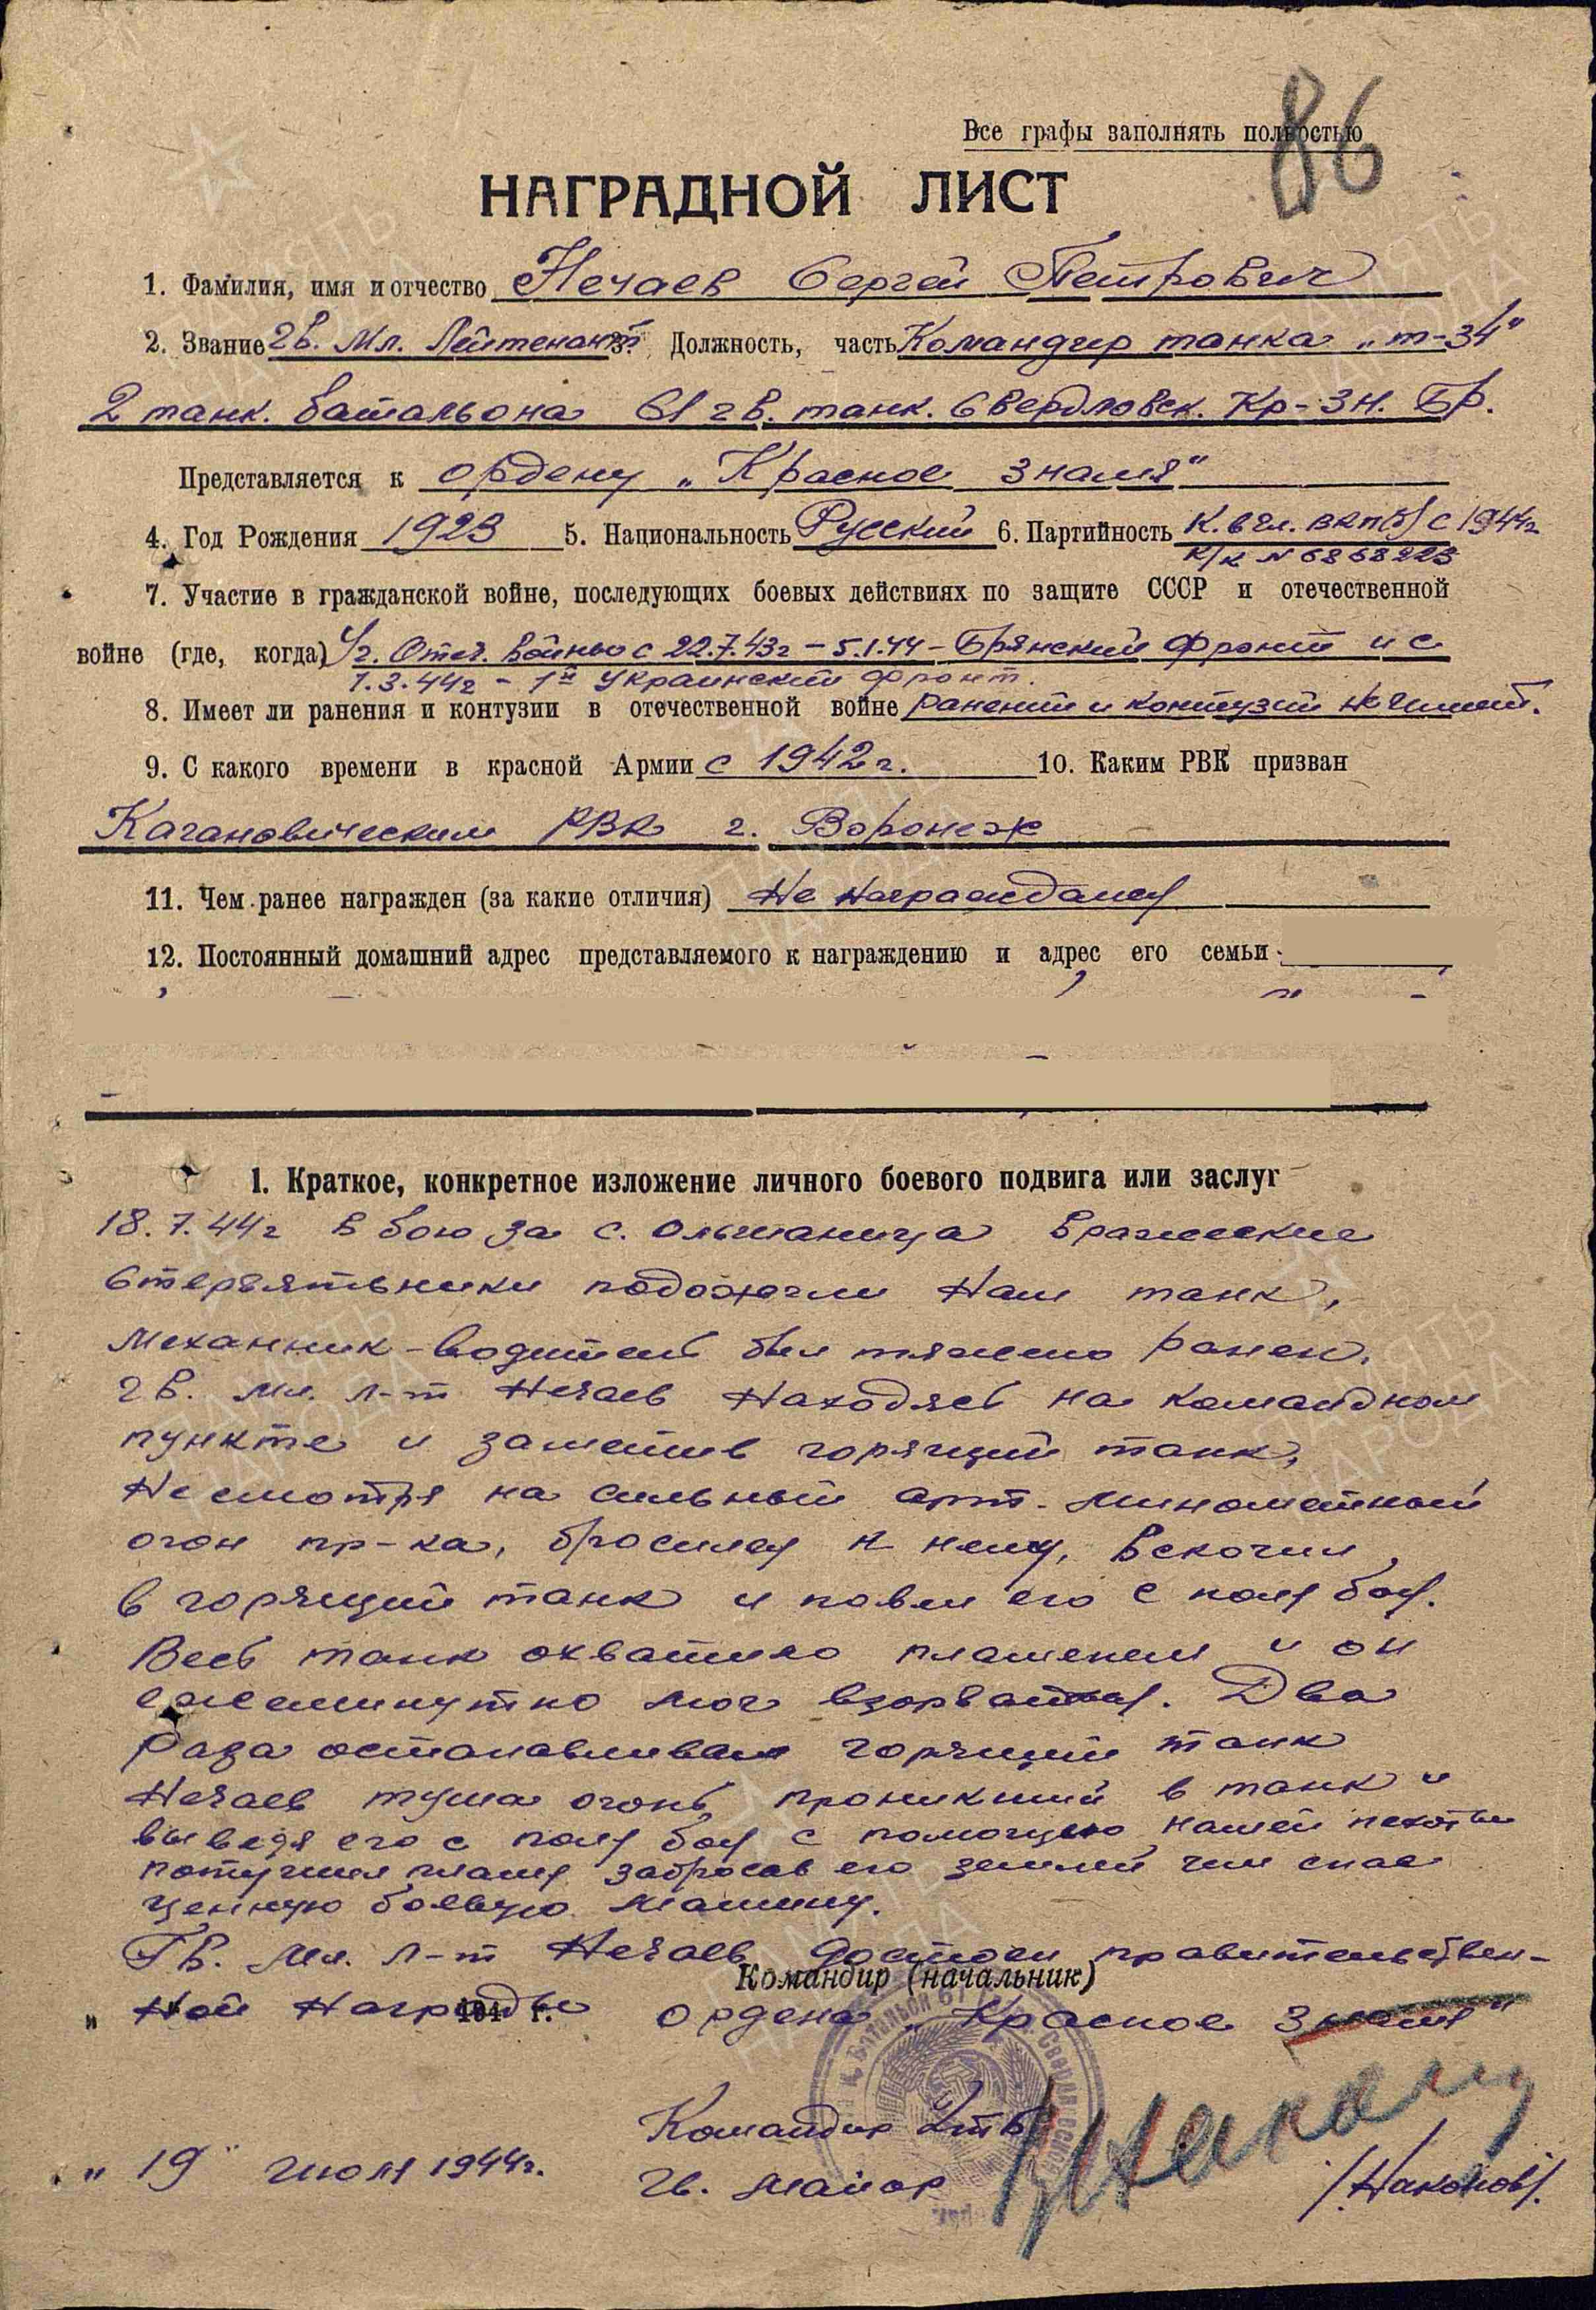 86
Все графы заполнять полностью
НАГРАДНОЙ ЛИСТ
1. Фамилия, имя и отчество Нечаев Сергей Петрович
2. Звание гв. мл. Лейтенант 3. Должность, часть Командир танка „Т-34"
2 танк. батальона 61 гв. танк. Свердловск. Кр-Зн. Бр.
Представляется к ордену „Красное Знамя"
4. Год Рождения 1923 5. Национальность Русский 6. Партийность К. в чл. ВКП(б) с 1944г
К/к № 6868223
7. Участие в гражданской войне, последующих боевых действиях по защите СССР и отечественной
войне (где, когда) Уч. Отеч. войны с 22.7.43г – 5.1.44 – Брянский фронт и с
1.3.44г – 1й Украинский фронт.
8. Имеет ли ранения и контузии в отечественной войне ранений и контузий не имеет.
9. С какого времени в красной Армии с 1942 г. 10. Каким РВК призван
Кагановическим РВК г. Воронеж
11. Чем ранее награжден (за какие отличия) Не награждался
12. Постоянный домашний адрес представляемого к награждению и адрес его семьи
1. Краткое, конкретное изложение личного боевого подвига или заслуг
18.7.44г в бою за с. Ольшаница вражеские
стервятьники подожгли наш танк,
механник-водитель был тяжело ранен.
гв. мл. л-т Нечаев находясь на командном
пункте и заметив горящий танк,
несмотря на сильный арт. минометный
огон пр-ка, бросился к нему, вскочил
в горящий танк и повел его с поля боя.
Весь танк охватило пламенем и он
ежеминутно мог взорваться. Два
раза останавливал горящий танк
Нечаев туша огонь проникший в танк и
выведя его с поля боя с помощью нашей пехоты
потушил пламя забросав его землей чем спас
ценную боевую машину.
Гв. мл. л-т Нечаев достоен правительствен-
Командир (начальник)
" ной награды 194 г. ордена „Красное Знамя"
Командир 2тб
„ 19 " июля 1944г. гв. майор /Наконов/.
ПАМЯТЬ НАРОДА